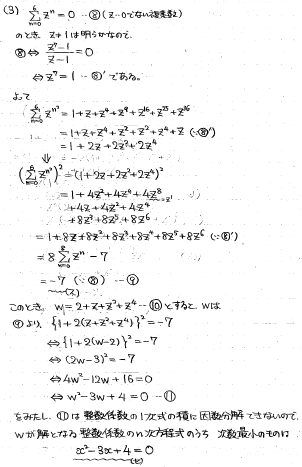 (3) Σ_{n=0}^{6} z^n = 0 … ⑧ (z…0でない複素数)
のとき z≠1は明らかなので、
⑧ ⇔ (z^7-1)/(z-1) = 0
⇔ z^7 = 1 … ⑧' である。
よって
Σ_{n=0}^{6} z^{n²} = 1+z+z^4+z^9+z^16+z^25+z^36
= 1+z+z^4+z^2+z^2+z^4+z (∵⑧')
= 1+2z+2z^2+2z^4
⇓
(Σ_{n=0}^{6} z^{n²})^2 = (1+2z+2z^2+2z^4)^2
= 1+4z^2+4z^4+4z^8
+4z+4z^2+4z^4
+8z^3+8z^5+8z^6
= 1+8z+8z^2+8z^3+8z^4+8z^5+8z^6 (∵⑧')
= 8Σ z^n - 7
= -7 (∵⑧) … ⑨
このとき w = 2+z+z^2+z^4 … ⑩ とすると wは
⑨より、{1+2(z+z^2+z^4)}^2 = -7
⇔ {1+2(w-2)}^2 = -7
⇔ (2w-3)^2 = -7
⇔ 4w^2-12w+16 = 0
⇔ w^2-3w+4 = 0 … ⑪
をみたし、⑪は整数係数の1次式の積に因数分解できないので、
wが解となる整数係数のn次方程式のうち 次数最小のものは
x^2-3x+4 = 0